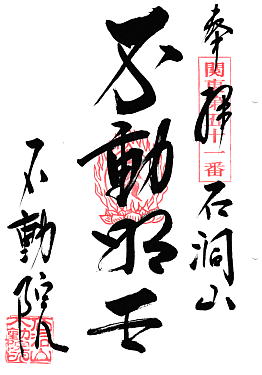 奉拝 石洞山
関東第五十一番
不動明王
不動院